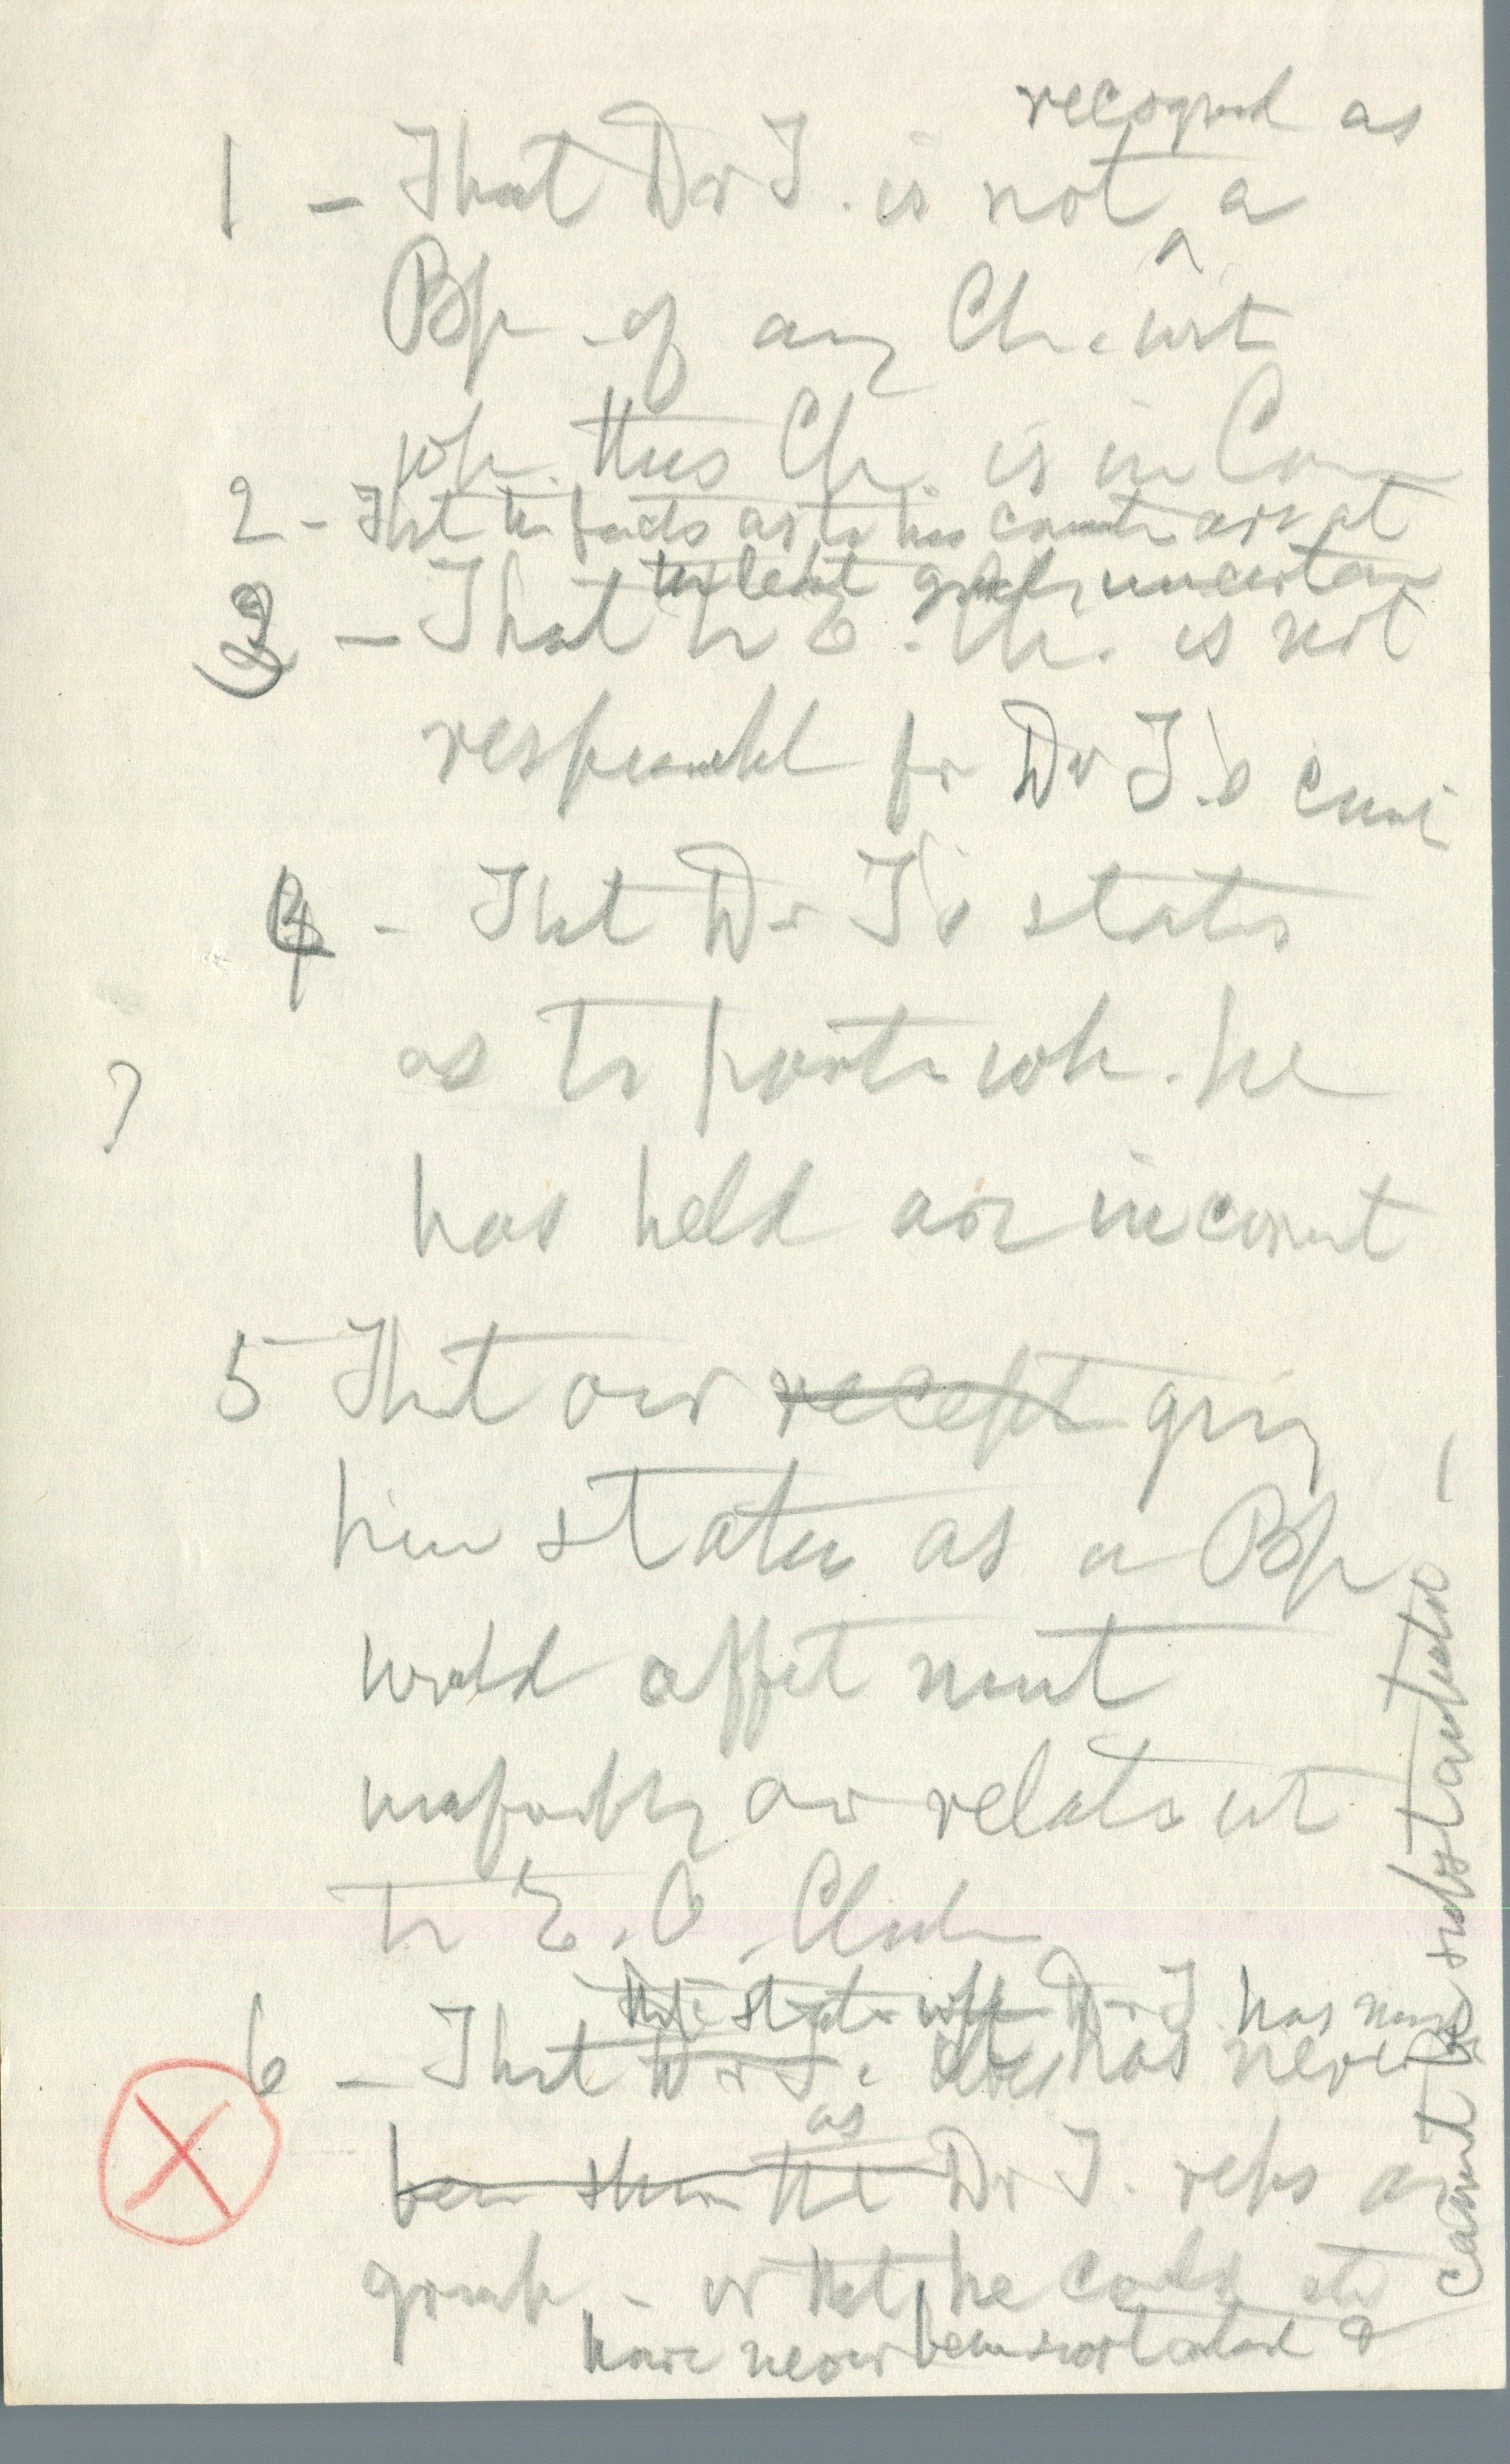 recognd as
1 - That Dr T. is not ^ a
Bp. of any Ch. wt
wh. this Ch. is in Com
2 - That the facts as to his consecration are at
the least gravely uncertain
3 - That the E. Ch. is not
responsbl for Dr T.'s
4 - That Dr T's states
as to posits wh. he
has held are incorrect
?
5 That our recept giving
him status as a Bp
would affect most
unfavorbly our relats wt
the E. O. Churches
the states wh Dr T. has made
6 - That Dr T. has never
been shown that as Dr T. reps a
group - or that he could
have never been substantiated &
cannot be substantiated